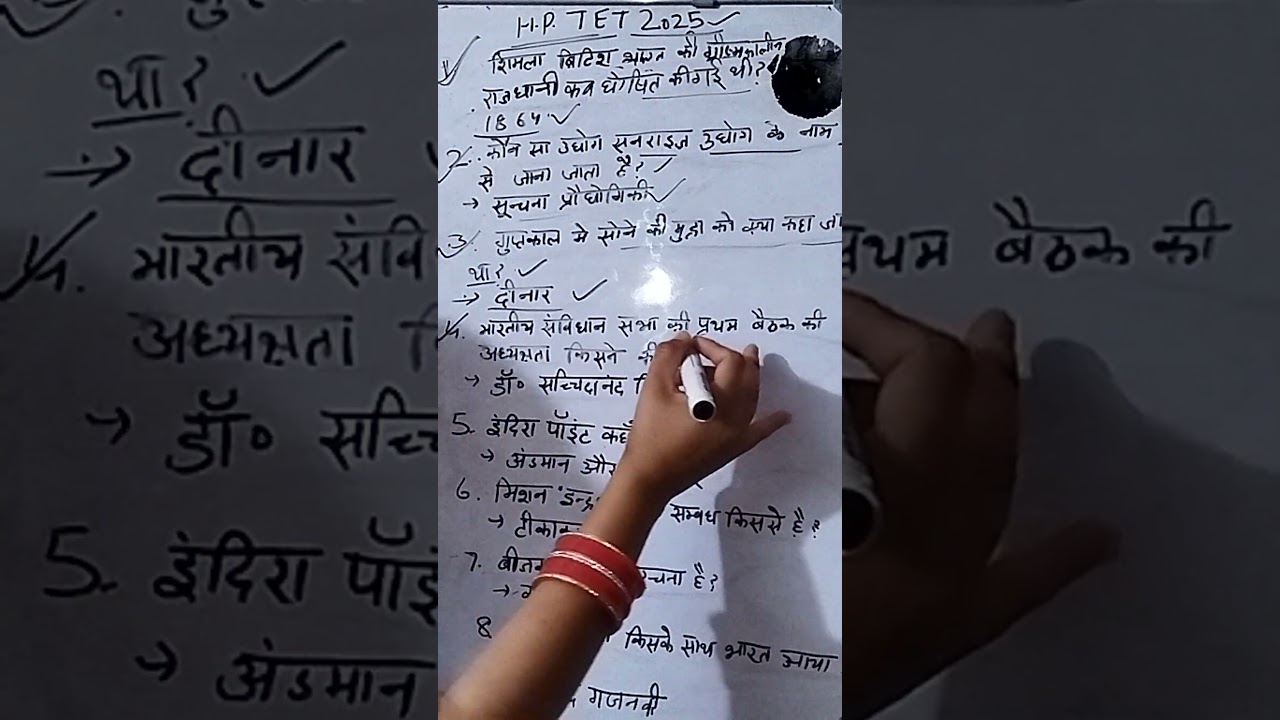 H.P. TET 2025
1. शिमला ब्रिटिश भारत की ग्रीष्मकालीन
राजधानी कब घोषित की गई थी?
1864.
2. कौन सा उद्योग सनराइज उद्योग के नाम
से जाना जाता है?
→ सूचना प्रौद्योगिकी
3. गुप्तकाल मे सोने की मुद्रा को क्या कहा जा
था?
→ दीनार
4. भारतीय संविधान सभा की प्रथम बैठक की
अध्यक्षता किसने की
→ डॉ० सच्चिदानंद
5. इंदिरा पॉइंट
→ अंडमान और
6. मिशन इन्द्र सम्बंध किससे है?
→ टीका
7. रचना है?
8 किसके साथ भारत आया
गजनवी